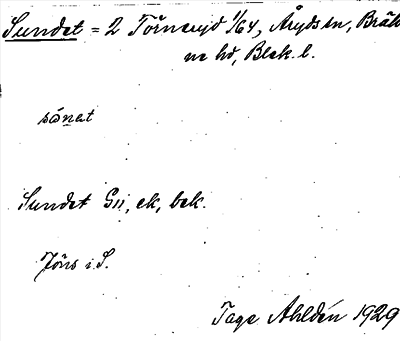 Sundet = 2 Törneryd 1/64, Åryds sn, Bräk
ne hd, Blek. l.
sönet
Sundet GII, ek, bek.
Jöns i S.
Tage Ahldén 1929